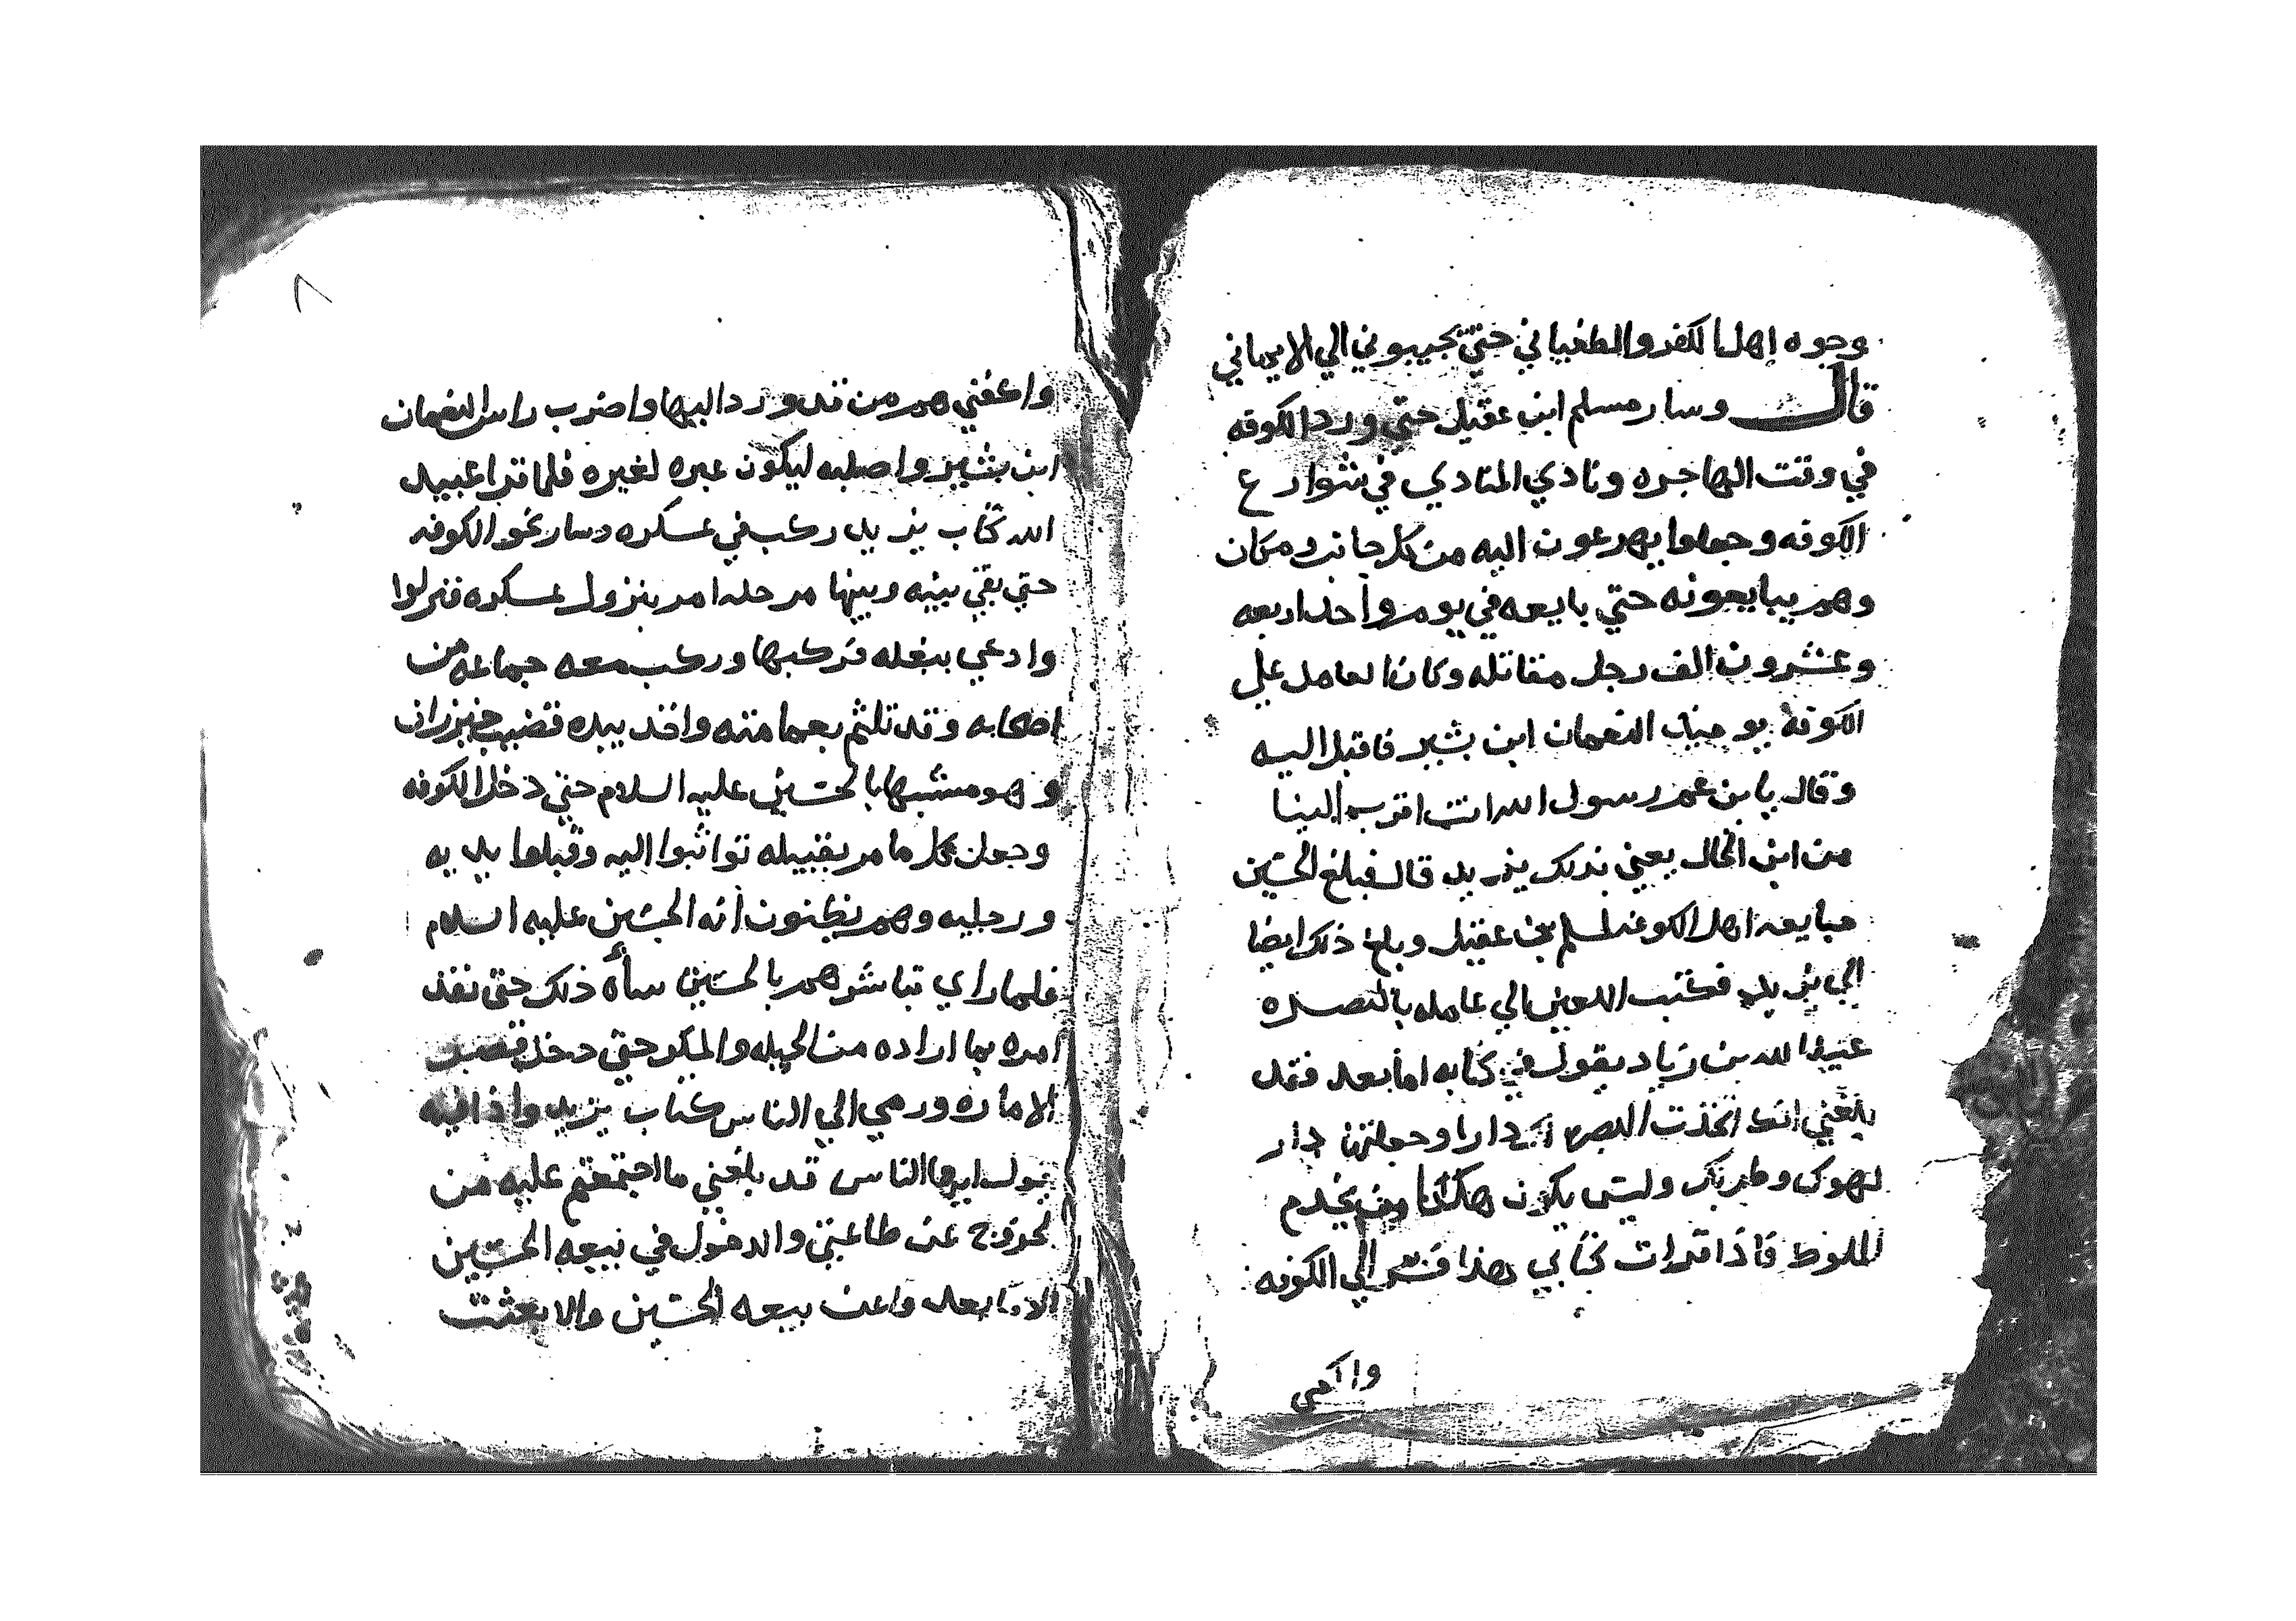 وجوه اهل الكفر والطغياني حتي يجيبوني الي الايماني
قال وسار مسلم ابن عقيل حتي ورد الكوفه
في وقت الهاجره ونادي المنادي في شوارع
الكوفه وجعلوا يهرعون اليه من كل جانب ومكان
وهم يبايعونه حتي بايعه في يوم واحد اربعه
وعشرون الف رجل مقاتله وكان العامل علي
الكوفة يوميذ النعمان ابن بشير فاقبل اليه
وقال يابن عم رسول الله انت اقرب الينا
من ابن الخال يعني بذلك يزيد قال فبلغ الحسين
مبايعه اهل الكوفه لمسلم بن عقيل وبلغ ذلك ايضا
الي يزيد فكتب اللعين الي عامله بالبصره
عبيد الله بن زياد يقول في كتابه اما بعد فقد
بلغني انك اتخذت البصره دارا وجعلتها دار
لهوك وطربك وليس يكون هكذا من يخدم
الملوك فاذا قرات كتابي هذا فسر الي الكوفه
واكفي
٨
واكفني هم من قد ورد اليها واضرب راس النعمان
ابن بشير واصلبه ليكون عبره لغيره فلما قرا عبيد
الله كتاب يزيد ركب في عسكره وسار نحو الكوفه
حتي بقي بينه وبينها مرحله امر بنزول عسكره فنزلوا
وادعي ببغله فركبها وركب معه جماعه من
اصحابه وقد تلثم بعمامته واخذ بيده قضيب خيزران
وهو مشبها بالحسين عليه السلام حتي دخل الكوفه
وجعل كل ما مر بقبيله تواثبوا اليه وقبلوا يديه
ورجليه وهم يظنون انه الحسين عليه السلام
فلما راي تباشرهم بالحسين سأه ذلك حتي نفذ
امره بما اراده من الحيله والمكر حتي دخل قصر
الاماره ورمي الي الناس كتاب يزيد واذا فيه
يقول ايها الناس قد بلغني ما اجتمعتم عليه من
لخروج عن طاعتي والدخول في بيعه الحسين
الا ما بعد واعن بيعه الحسين والا بعثت